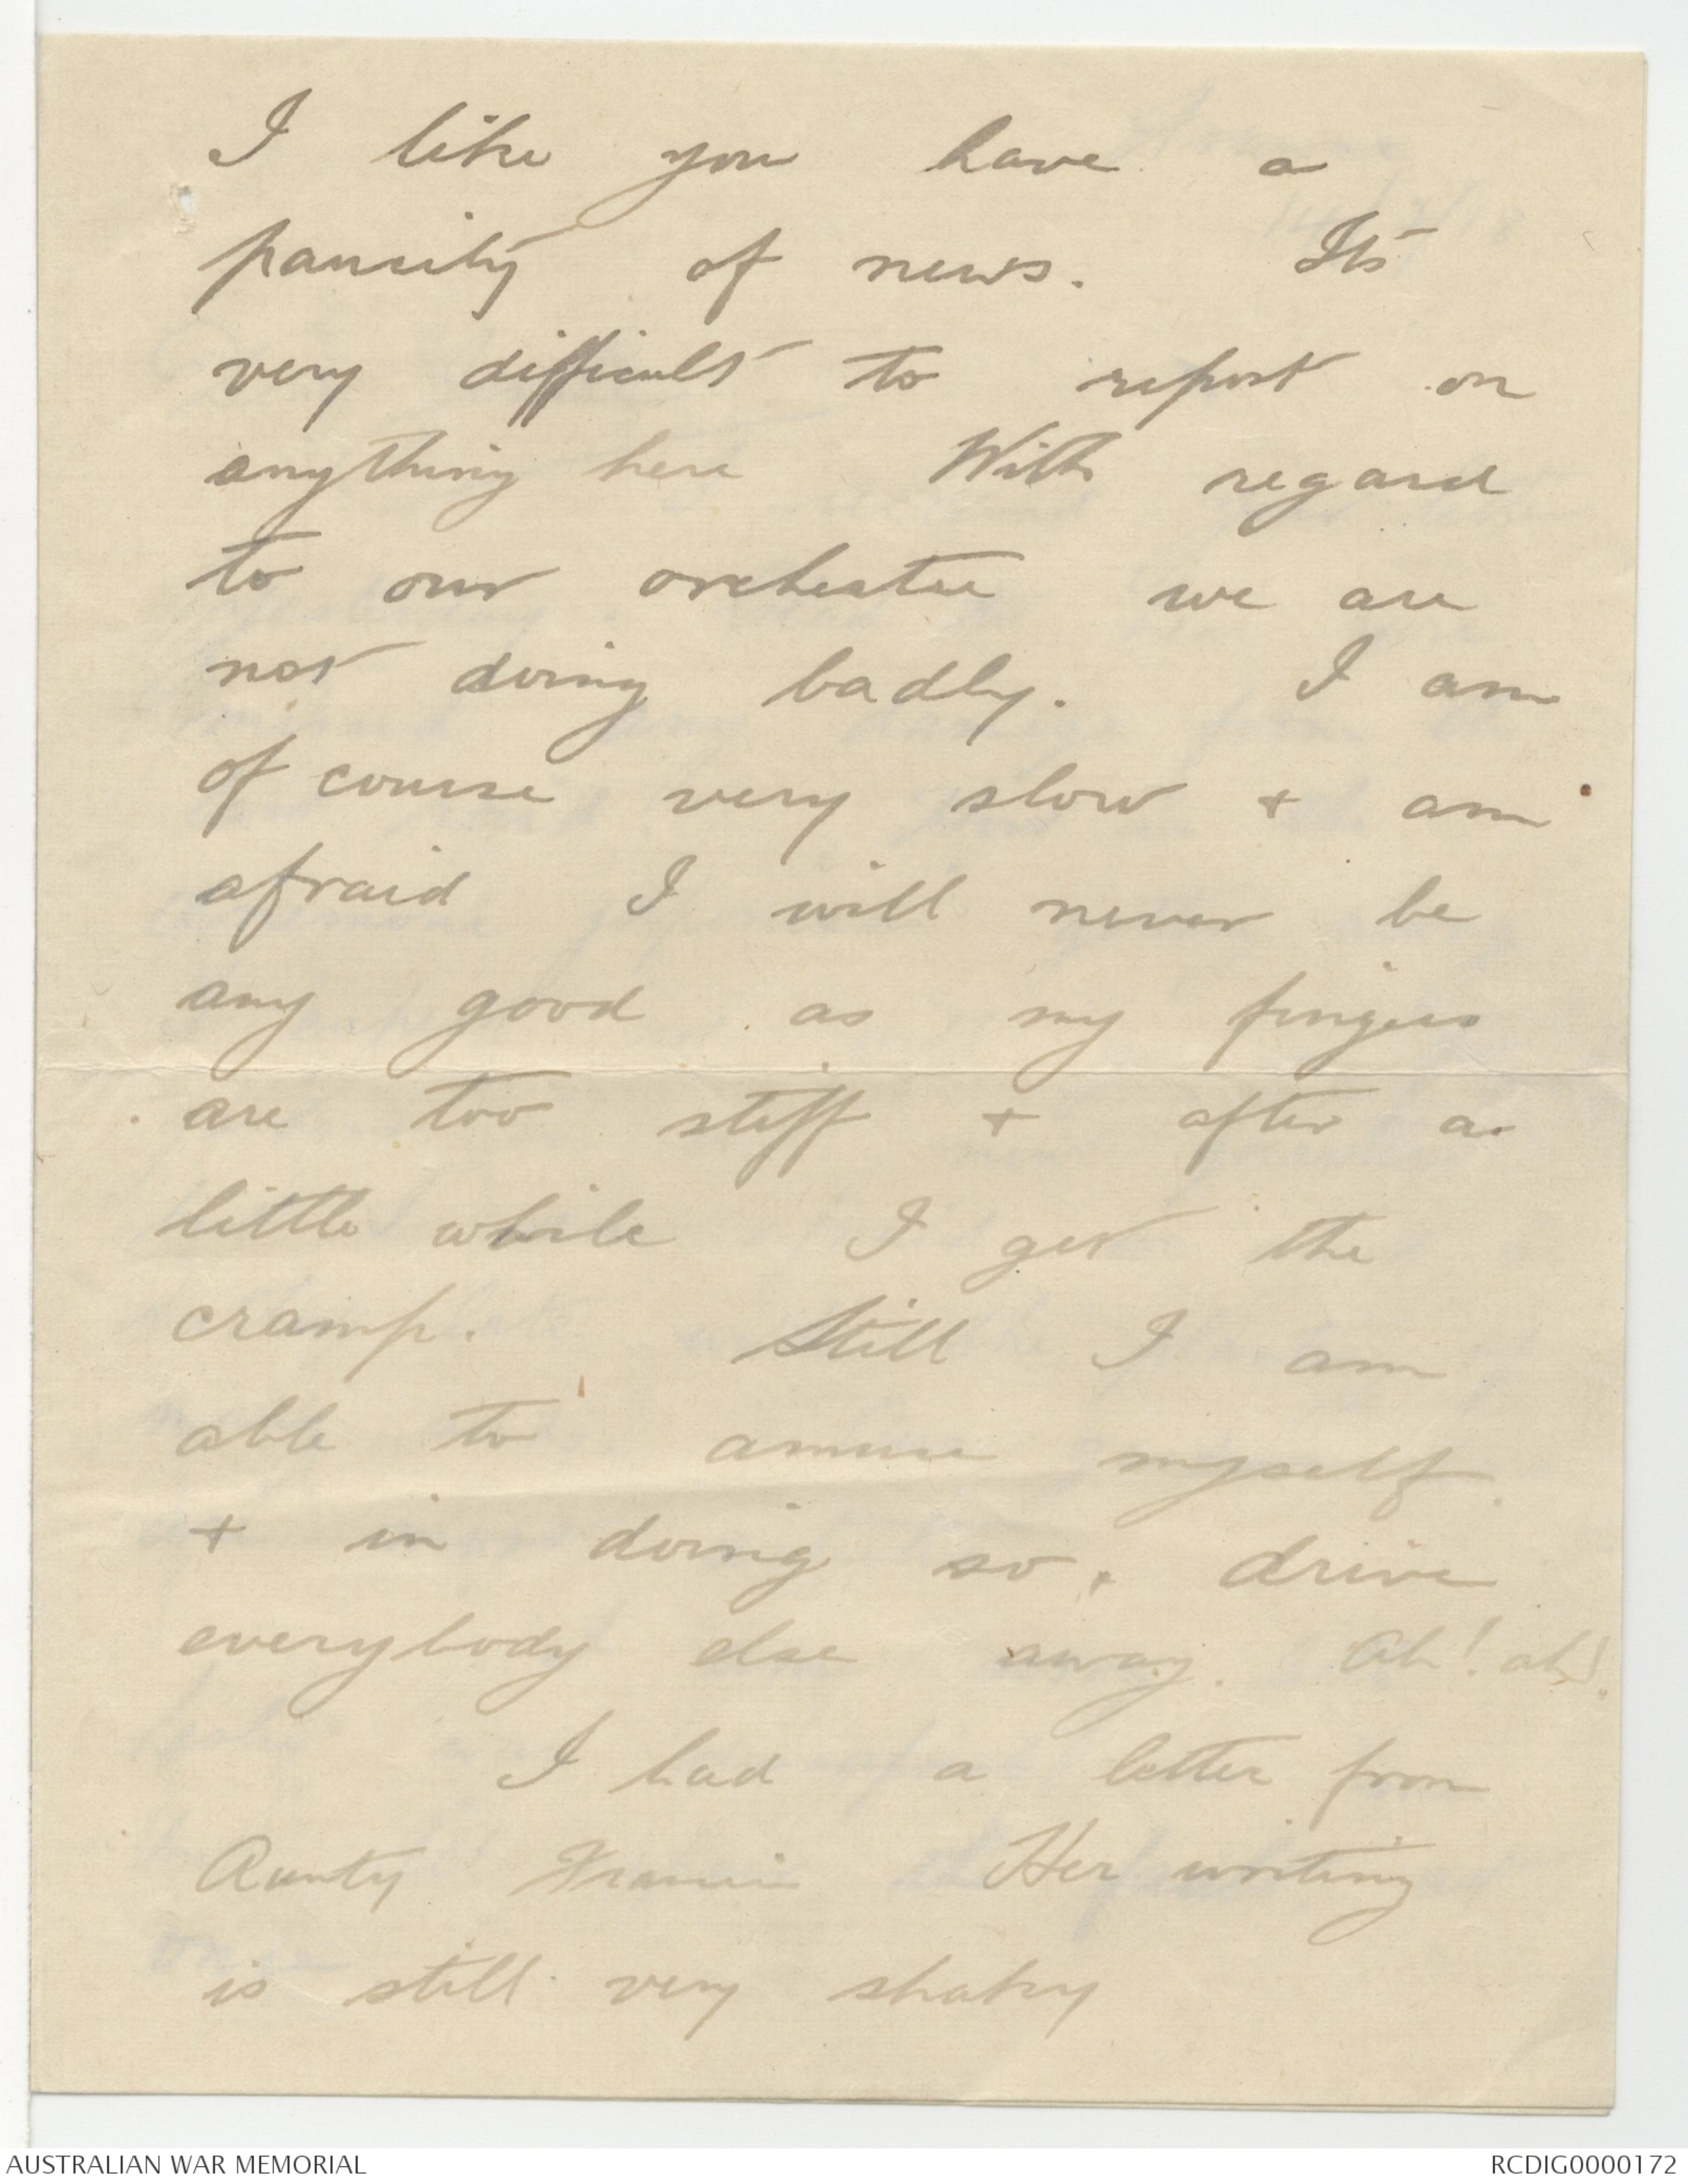 I like you have a
paucity of news. Its
very difficult to report on
anything here With regard
to our orchestra we are
not doing badly. I am
of course very slow + am
afraid I will never be
any good as my fingers
are too stiff + after a
little while I get the
cramp. Still I am
able to amuse myself
+ in doing so, drive
everybody else away. Ah! ah!
I had a letter from
Aunty Her writing
is still very shaky
AUSTRALIAN WAR MEMORIAL RCDIG0000172